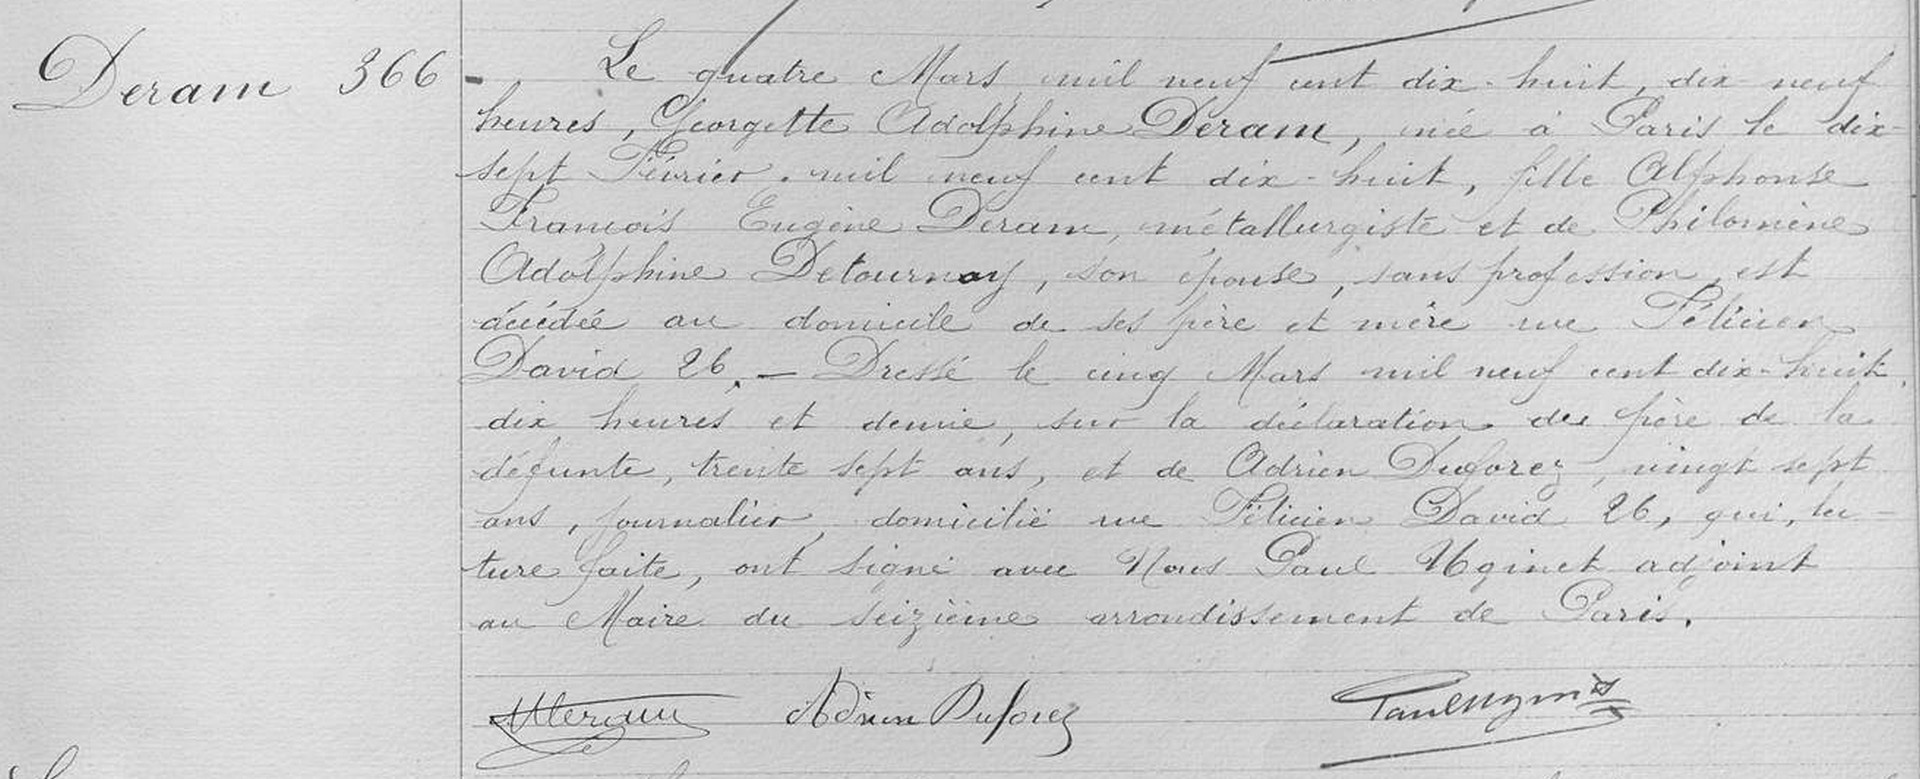 Deram 366
Le quatre Mars mil neuf cent dix-huit, dix neuf
heures, Georgette Adolphine Deram, née à Paris le dix-
sept Février mil neuf cent dix-huit, fille Alphonse
François Eugène Deram, métallurgiste et de Philomène
Adolphine Detournay, son épouse, sans profession, est
décédée au domicile de ses père et mère rue Félicien
David 26. — Dressé le cinq Mars mil neuf cent dix-huit,
dix heures et demie, sur la déclaration du père de la
défunte, trente sept ans, et de Adrien Duforez, vingt sept
ans, journalier, domicilié rue Félicien David 26, qui, lec-
ture faite, ont signé avec Nous Paul Uginet adjoint
au Maire du seizième arrondissement de Paris.
Deram Adrien Duforez Paul Uginet